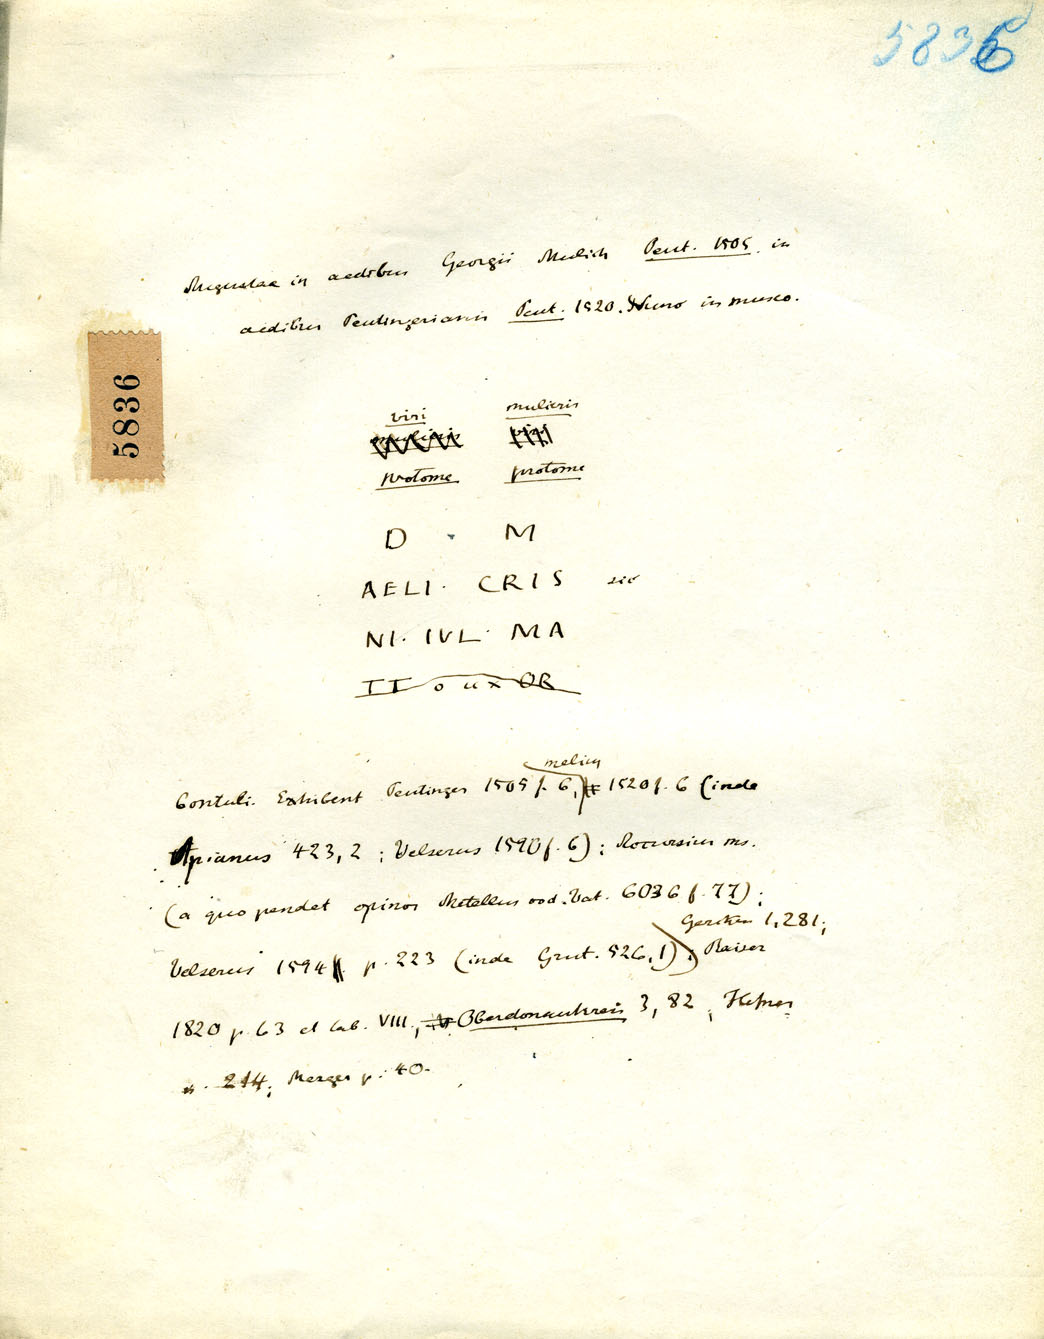 5836
Augustae in aedibus Georgii Mulich Peut. 1505, in
aedibus Peutingerianis Peut. 1520. Nunc in museo.
5836
viri mulieris
protome protome
D · M
AELI · CRIS sic
NI · IVL · MA
II o ux OR
Contuli. Exhibent Peutinger 1505 f. 6, melius 1520 f. 6 (inde
Apianus 423, 2; Velserus 1590 f. 6); Accursius ms.
(a quo pendet opinor Metellus cod. Vat. 6036 f. 77);
Velserus 1594 p. 223 (inde Grut. 526, 1); Gercken 1, 281; Raiser
1820 p. 63 et tab. VIII, Oberdonaukreis 3, 82; Hefner
n. 214; Mezger p. 40.